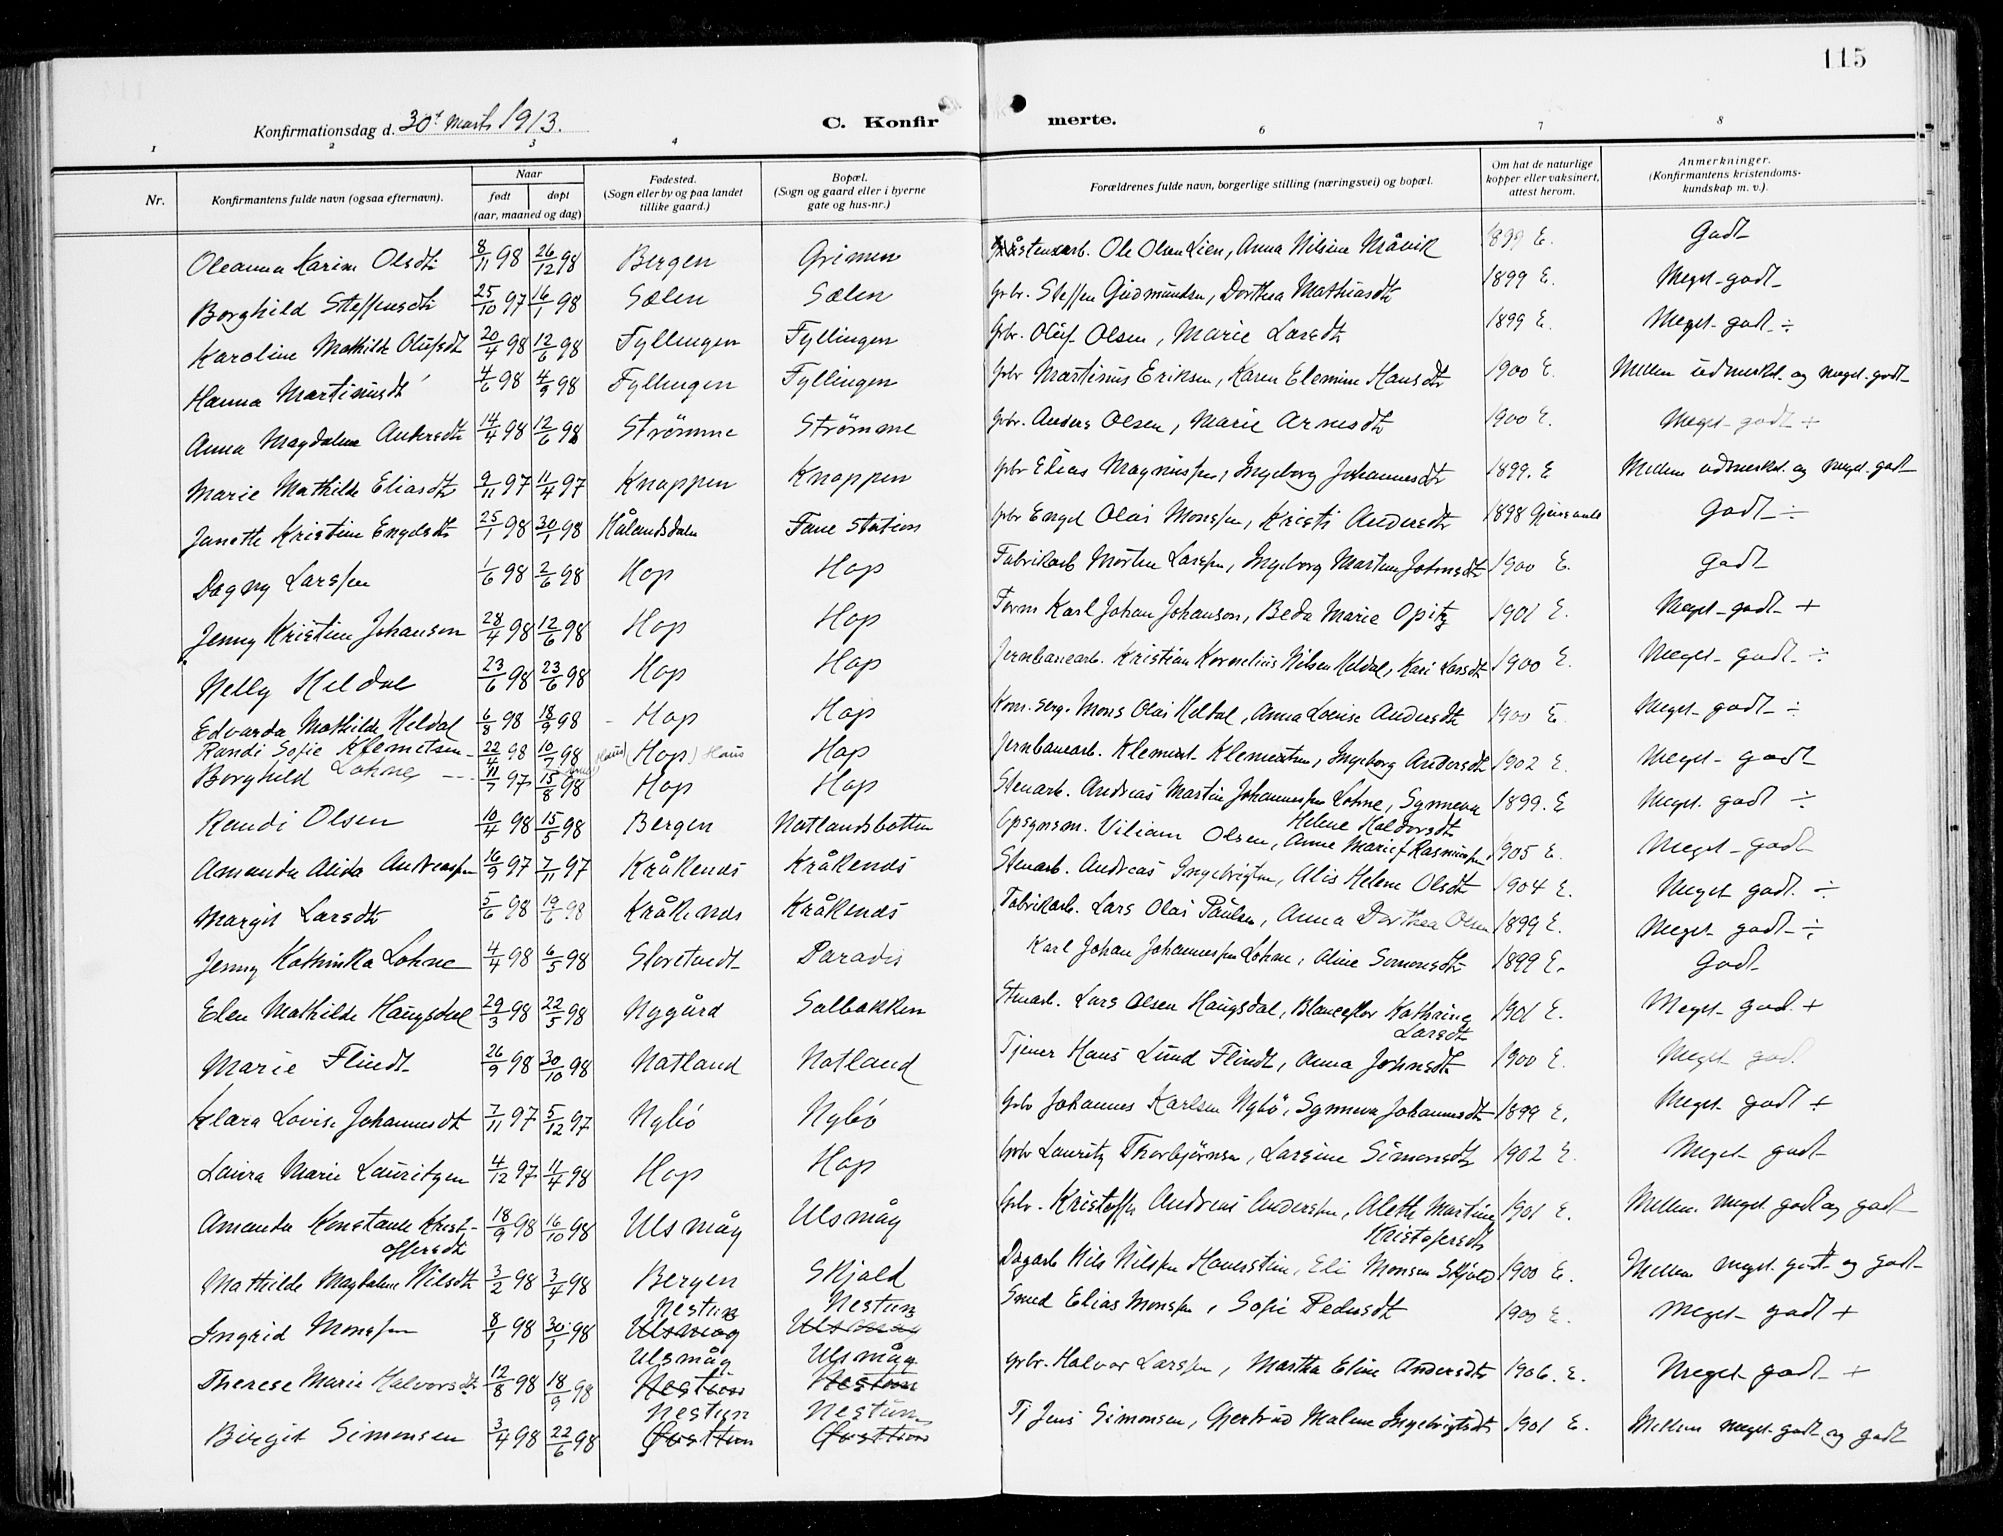 115
Konfirmationsdag d. 30t Marts 1913. C. Konfir merte.
1 2 3 4 6 7 8
Nr. Konfirmantens fulde navn (ogsaa efternavn). Naar født døpt (aar, maaned og dag) Fødested. (Sogn eller by og paa landet tillike gaard.) Bopæl. (Sogn og gaard eller i byerne gate og hus-nr.) Forældrenes fulde navn, borgerlige stilling (næringsvei) og bopæl. Om hat de naturlige kopper eller vaksinert, attest herom. Anmerkninger. (Konfirmantens kristendoms-kundskap m. v.).
Oleanna Karine Olsdtr 8/11 98 26/12 98 Bergen Grimen Ole Olsen Lien, Anna Nilsine Måvik 1899 E. Godt
Borghild Steffensdtr 25/10 97 16/1 98 Sælen Sælen Gbr. Steffen Gudmundsen, Dorthea Mathiasdtr 1899 E. Meget godt
Karoline Mathilde Olufsdt 20/4 98 12/6 98 Fyllingen Fyllingen Gbr. Oluf Olsen, Marie Larsdtr 1899 E. Meget godt ÷
Hanna Martinusdt 4/6 98 4/9 98 Fyllingen Fyllingen Gbr Martinus Eriksen, Karen Elemine Hansdtr 1900 E. Mellem udmerket og meget godt
Anna Magdalene Andersdtr 14/4 98 12/6 98 Strømme Strømme Gbr. Anders Olsen, Marie Arnesdtr 1900 E. Meget godt +
Marie Mathilde Eliasdtr 9/11 97 11/4 97 Knappen Knappen Gbr Elias Magnussen, Ingeborg Johannesdtr 1899. E Mellem udmerket og meget godt
Janette Kristine Engelsdtr 25/1 98 30/1 98 Hålandsdalen Fane Station Gbr Engel Olai Monssen, Kristi Andersdtr 1898 Godt ÷
Dagny Larssen 1/6 98 2/6 98 Hop Hop Fabrikarb Morten Larssen, Ingeborg Martine Johnsdtr 1900 E. Godt
Jenny Kristine Johanson 28/4 98 12/6 98 Hop Hop Form Karl Johan Johanson, Beda Marie Opitz 1901 E. Meget godt +
Nelly Heldal 23/6 98 23/6 98 Hop Hop Jernbanearb. Kristian Kornelius Nilsen Heldal, Kari Larsdtr 1900 E. Meget godt ÷
Edvarda Mathilde Heldal 6/8 98 18/9 98 Hop Hop Kom. Serg. Mons Olai Heldal, Anna Lovise Andersdtr 1900 E. Meget godt ÷
Randi Sofie Klemetsen 22/4 98 10/7 98 Haus (Hop) Haus Hop Jernbanearb. Klement Klementsen, Ingeborg Andersdtr 1902 E. Meget godt
Borghild Lohne 11/7 97 15/8 98 Hop Hop Stenarb. Andreas Martin Johannessen Lohne, Synneva Helene Haldorsdtr 1899. E Meget godt ÷
Randi Olsen 10/4 98 15/5 98 Bergen Natlandsbotten Opsynsm. Viliam Olsen, Anne Marie f Rasmussen 1905 E. Meget godt
Amanda Alida Andreassen 16/9 97 7/11 97 Kråkenes Kråkenes Stenarb. Andreas Ingebrigtsen, Alis Helene Olsdtr 1904 E. Meget godt ÷
Margit Larsdtr 5/6 98 19/6 98 Kråkenes Kråkenes Fabrikarb. Lars Olai Paulsen, Anna Dorthea Olsen 1899 E. Meget godt ÷
Jenny Kathinka Lohne 4/4 98 6/5 98 Storetvedt Paradis Karl Johan Johannessen Lohne, Aline Simonsdtr 1899 E. Godt
Elen Mathilde Haugsdal 29/3 98 22/5 98 Nygård Solbakken Stenarb. Lars Olsen Haugsdal, Blanceflor Kathrine Larsdtr 1901 E. Meget godt +
Marie Flindt 26/9 98 30/10 98 Natland Natland Tjener Hans Lund Flindt, Anna Johnsdtr 1900 E. Meget god.
Klara Lovise Johannesdt 7/11 97 5/12 97 Nybö Nybö Gbr Johannes Karlsen Nybö, Synneva Johannesdtr 1899 E. Meget godt +
Laura Marie Lauritzen 4/12 97 11/4 98 Hop Hop Gbr Lauritz Thorbjörnsen, Larsine Simonsdtr 1902 E. Meget godt
Amanda Konstanse Krist-offersdtr 18/9 98 16/10 98 Ulsmåg Ulsmåg Gbr. Kristoffer Andreas Anderssen, Alette Martine Kristofersdtr 1901 E. Mellem meget godt og godt
Mathilde Magdalene Nilsdtr 3/2 98 3/4 98 Bergen Skjold Dagarb Nils Nilssen Hauerstein, Eli Monsen Skjold 1900 E. Mellem meget godt og godt
Ingrid Monssen 8/1 98 30/1 98 Nestun Ulsmåg Nestun Ulsmåg Smed Elias Monssen, Sofie Pedersdtr 1900 E. Meget godt +
Therese Marie Halvorsdt 12/8 98 18/9 98 Ulsmåg Nestun Ulsmåg Nestun Gbr. Halvor Larssen, Martha Eline Andersdtr 1906. E. Meget godt +
Birgit Simonsen 3/4 98 22/6 98 Nestun Nestun Tj Jens Simonsen, Gjertrud Malene Ingebrigtsdtr 1901 E. Mellem meget godt og godt